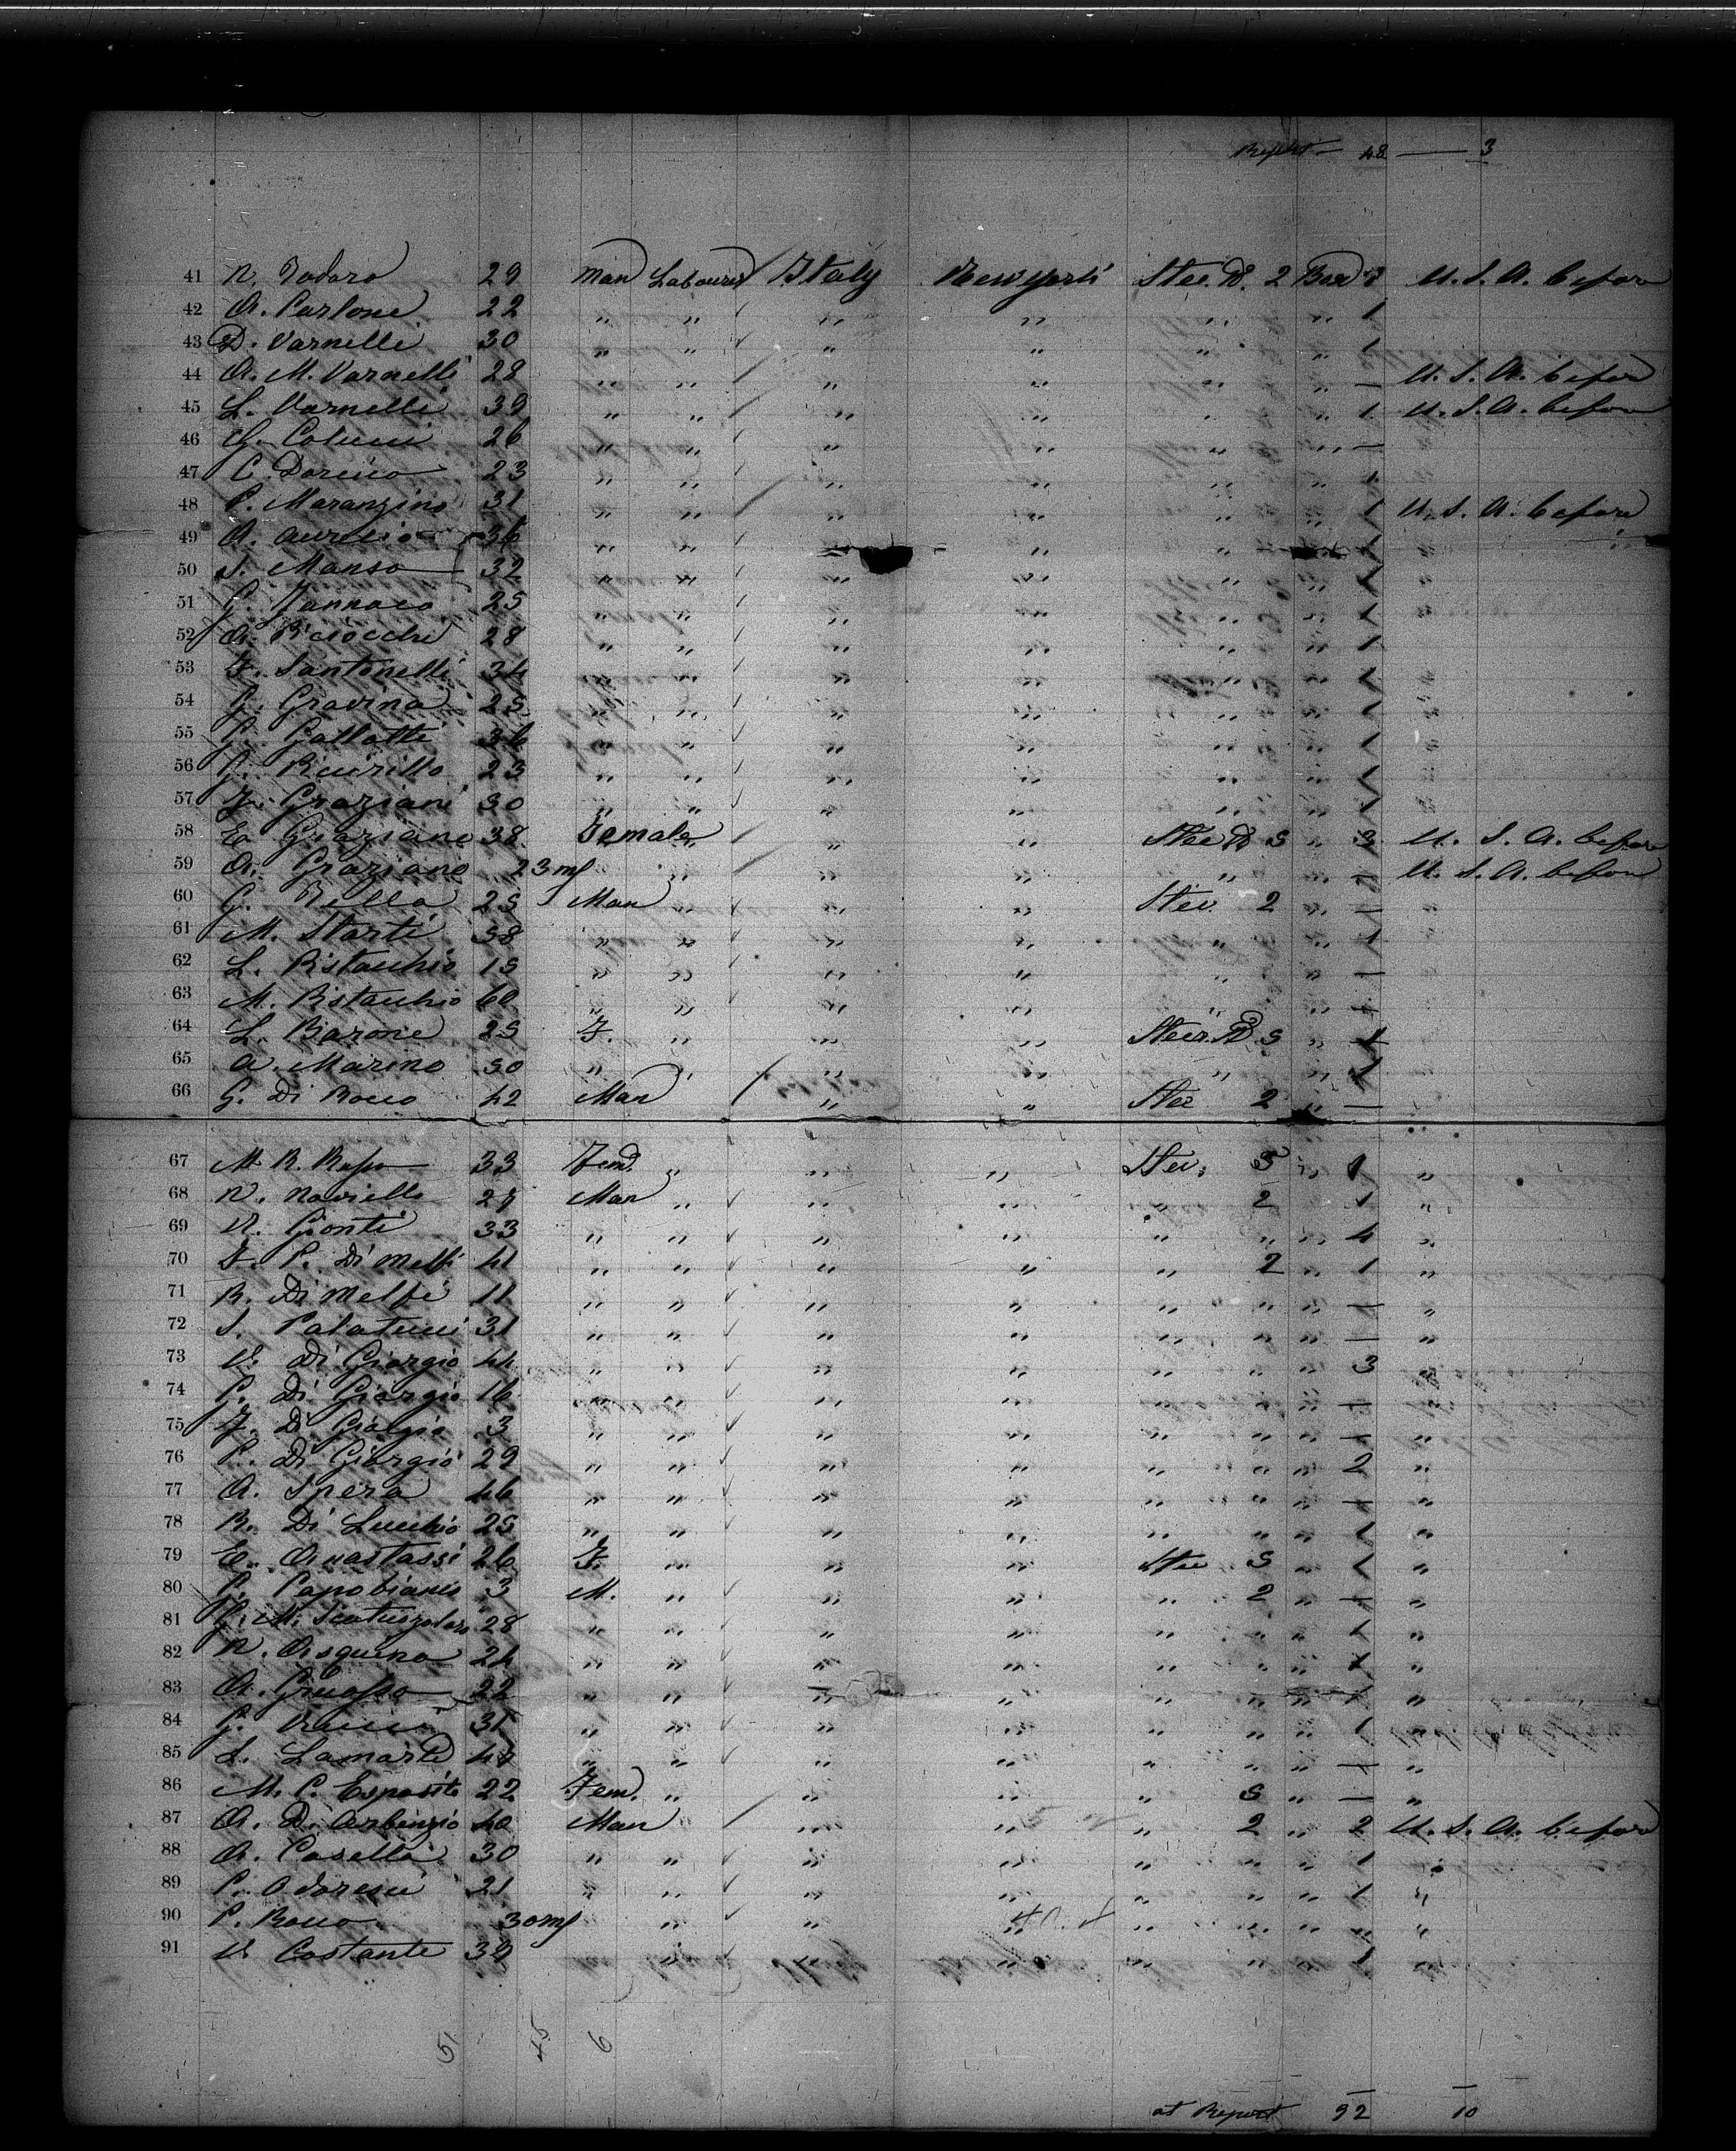 Report — 48 — 3
41 N. Todaro 29 Man Labourer / Italy New York Stee. D. 2 Box U. S. A. before
42 A. Carlone 22 " " " " " " 1
43 D. Varnelli 30 " " " " " " 1
44 A. M. Varnelli 28 " " / " " " " — U. S. A. before
45 L. Varnelli 39 " " / " " " " 1 U. S. A. before
46 G. Colucci 26 " " " " " " —
47 C. 23 " " " " " " 1
48 P. Maranzino 31 " " / " " " " 1 U. S. A. before
49 A. Aurelio 36 " " " " " 1 "
50 S. Manso 32 " " " " " " 1 "
51 G. Iannaco 25 " " " " " " 1 "
52 A. 28 " " " " " " 1 "
53 F. Santonelli 34 " " " " " " 1 "
54 G. Gravina 25 " " " " " " 1 "
55 Gallotti 36 " " " " " " 1 "
56 G. 23 " " " " " " 1 "
57 F. Graziani 30 " " " " " " 1 "
58 E. Graziano 38 Female " / " " Stee D S " 3 U. S. A. before
59 A. Graziano 23 m/ " " / " " " " — U. S. A. before
60 G. 25 Man " " " Stee. 2 " — "
61 M. Starti 58 " " " " " " 1 "
62 L. Pistacchio 15 " " " " " " — "
63 M. Pistacchio 60 " " " " " " —
64 L. Barone 25 F. " " " Steer. D S " 1
65 A. Marino 50 " " " " " " 1
66 G. Di Rocco 42 Man / " " Stee 2 " —
67 M. R. Russo 33 Fem. " " " Stee. S " 1 "
68 N. Noviello 27 Man " " " " 2 1 "
69 Gonti 33 " " " " " " " 4 "
70 F. P. Di Melfi 41 " " " " " 2 " 1 "
71 R. Di Melfi 11 " " " " " " " — "
72 S. Palatucci 31 " " " " " " " — "
73 V. Di Giorgio 44 " " " " " " " 3 "
74 G. Di Giorgio 16 " " " " " " " — "
75 F. Di Giorgio 3 " " " " " " " — "
76 P. Di Giorgio 29 " " " " " " " 2 "
77 A. Spera 46 " " " " " " " — "
78 R. Di Lucchio 25 " " " " " " " 1 "
79 E. Anastassi 26 F. " " " Stee S " 1 "
80 G. Capobianco 3 M. " " " " 2 " — "
81 G. M. 28 " " " " " " " 1 "
82 N. Asquino 24 " " " " " " " 1 "
83 A. Gruosso 22 " " " " " " " 1 "
84 G. 31 " " " " " " " 1 "
85 L. Lamarte " " " " " " " — "
86 M. C. Esposito 22 Fem. " " " " S " — "
87 A. D. Arbenzio 40 Man / " " " 2 " 2 U. S. A. before
88 A. Casella 30 " " " " " " " 1 "
89 P. Odoresci 21 " " " " " " " 1 "
90 P. Rocco 30 m/ " " " " " " "
91 V. Costante 39 " " " " " " " 1 "
51 45 6
at Report 92 10